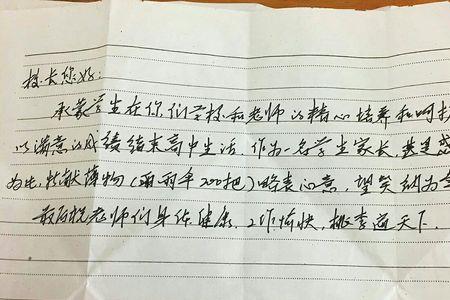 校长您好:
承蒙学生在你们学校和老师的精心培养和呵护
以满意的成绩结束高中生活. 作为一名学生家长, 甚是感
为此, 特献薄物(雨雨伞200把)略表心意, 望笑纳为
最后祝老师们身体健康, 工作愉快, 桃李遍天下.